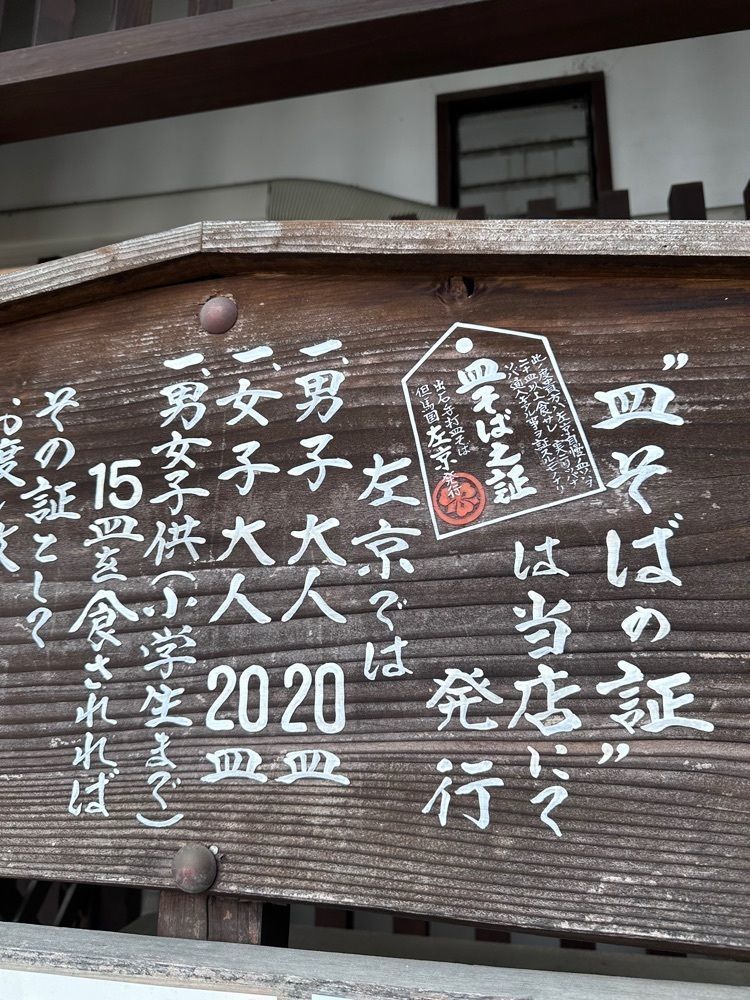 ”皿そばの証”
は当店にて
発行
皿そば之証
出石手打皿そば
但馬国左京発行
左京では
一、男子 大人 20皿
一、女子 大人 20皿
一、男女子供(小学生まで)
15皿を食されれば
その証として